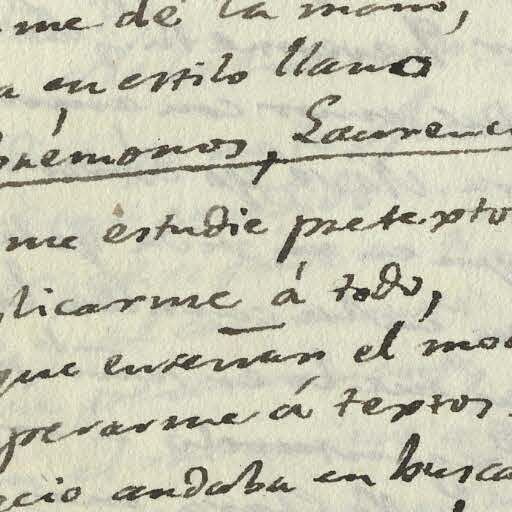 me dé la mano,
a en estilo llano
onémonos, Laurenc
me estudie pretexto
licarme á todo,
que enseñan el mo
perarme á textos.
ecio andaba en busca